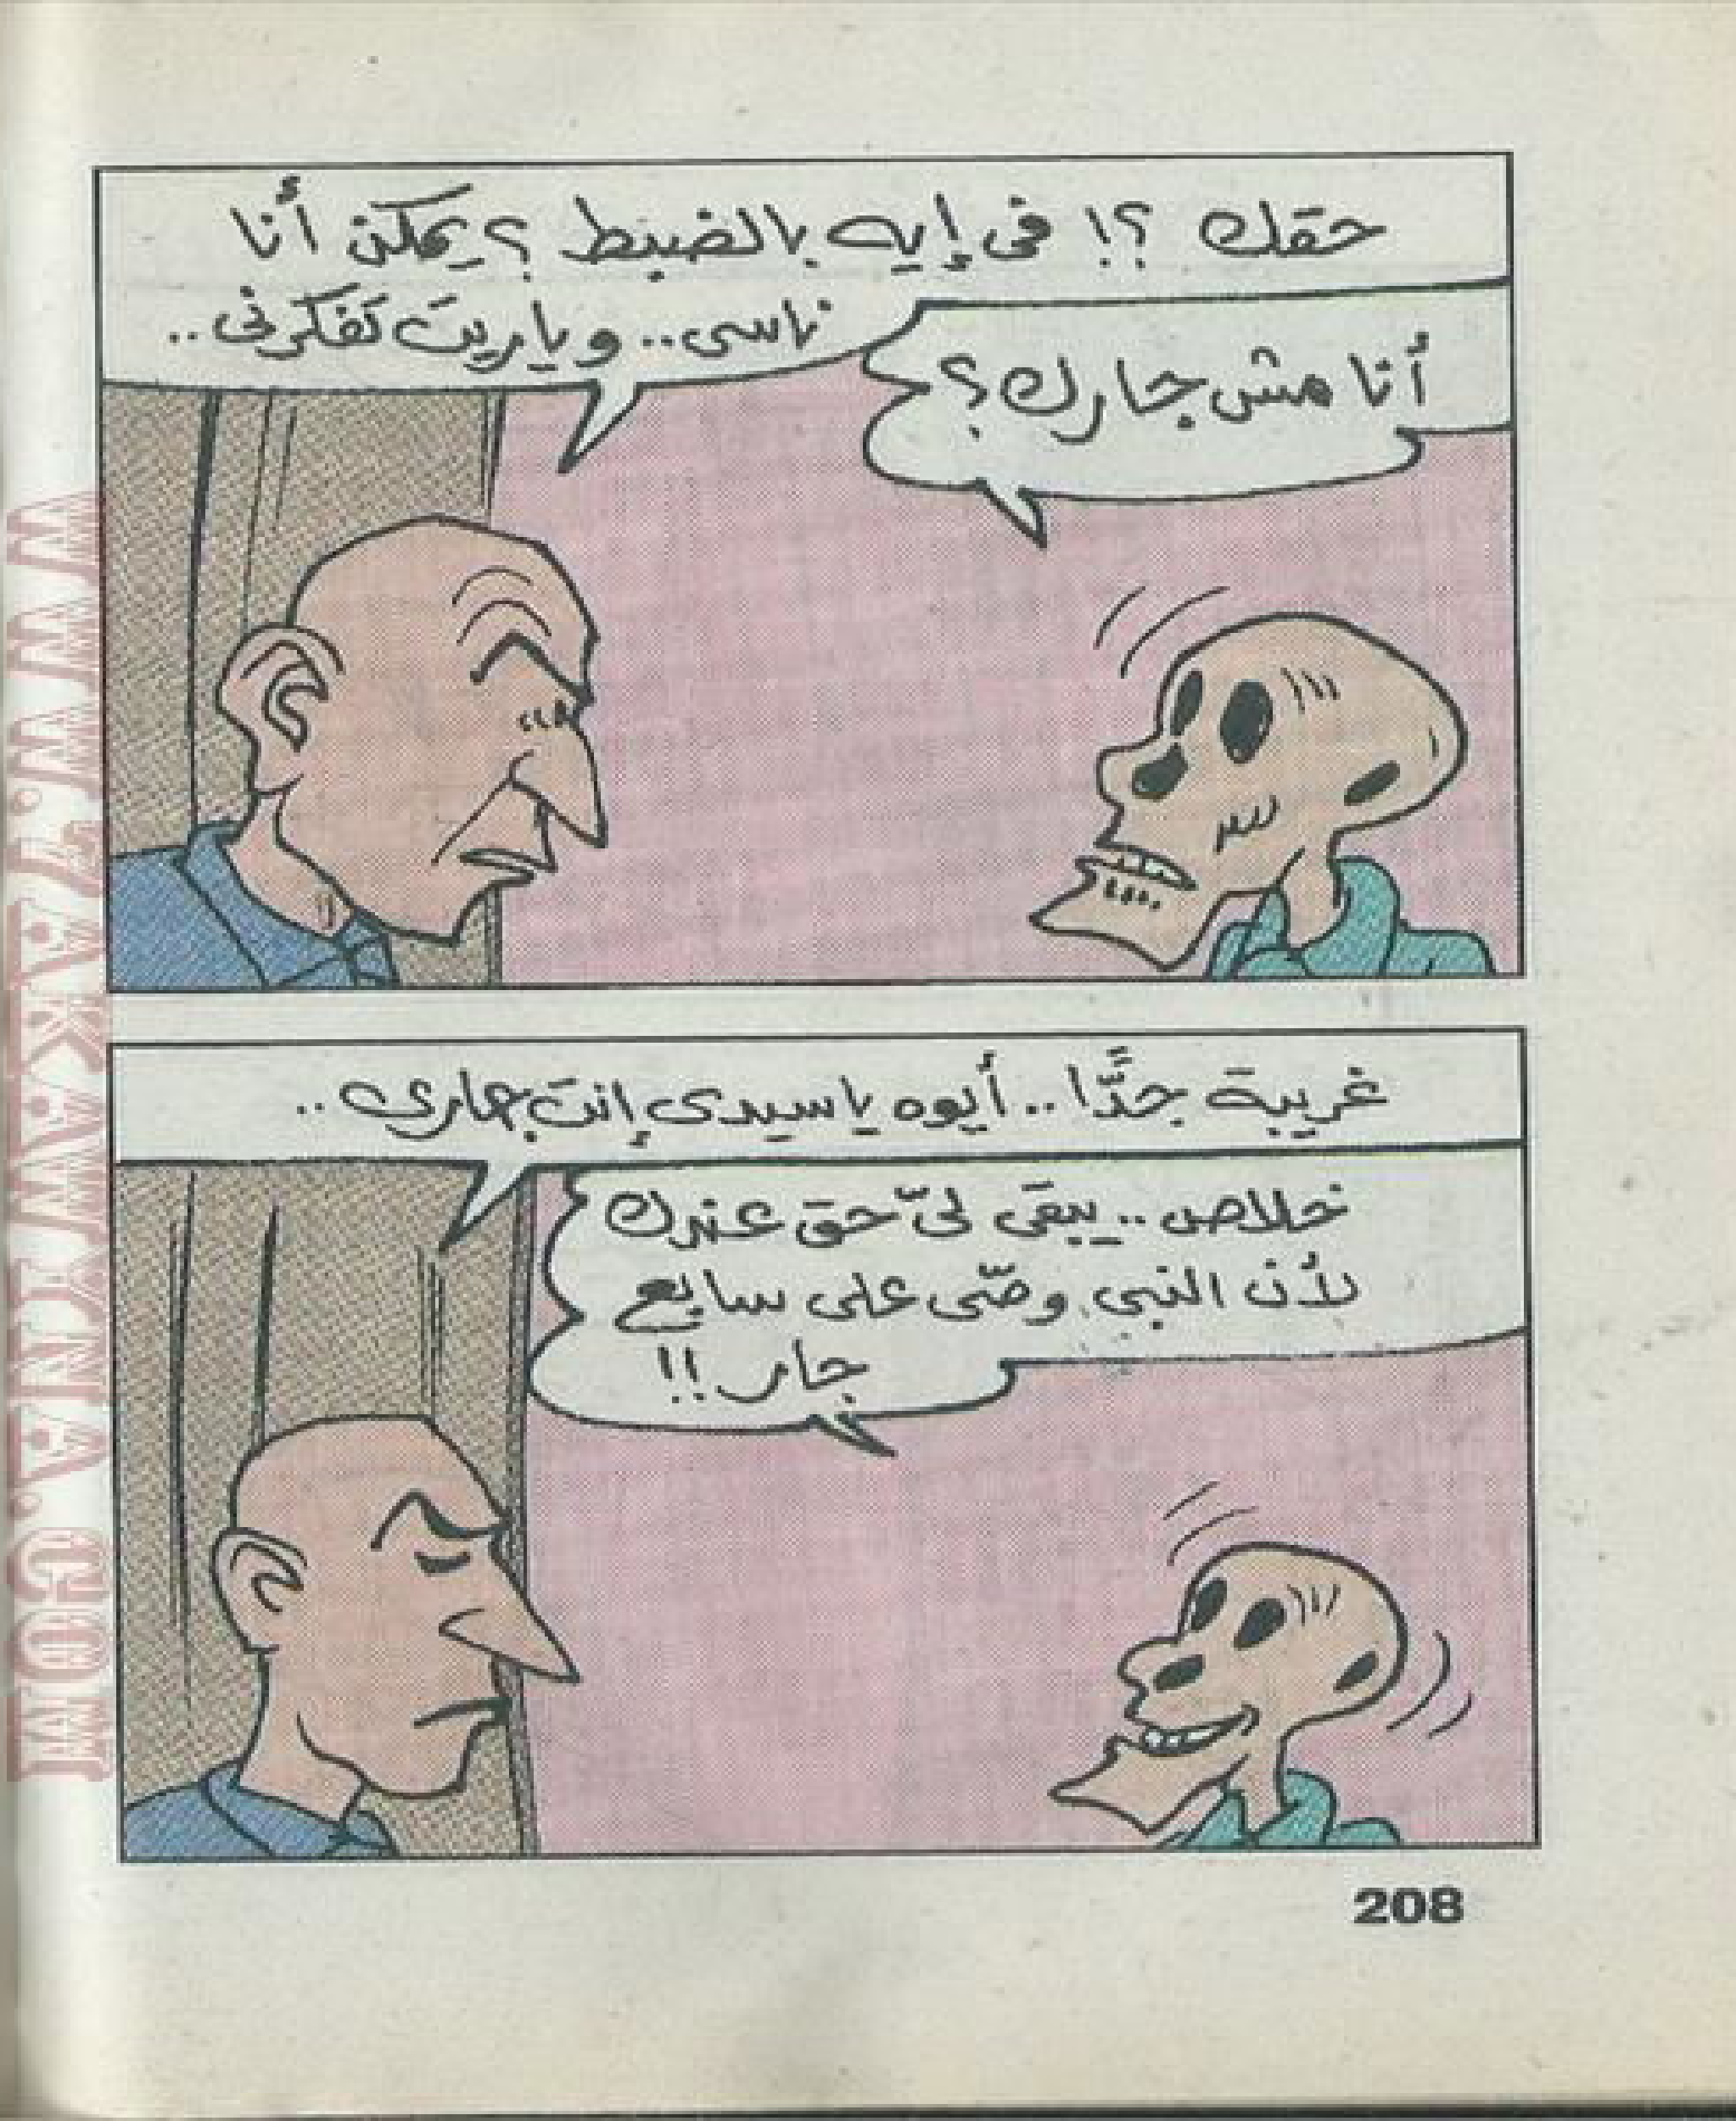 حقك ؟! فى إيه بالضبط ؟ يمكن أنا
ناسى.. وياريت تفكرنى..
أنا مش جارك؟
غريبة جدًّا.. أيوه ياسيدى إنت جارى..
خلاص.. يبقى لىّ حق عندك
لأن النبى وصّى على سابع
جار!!
208